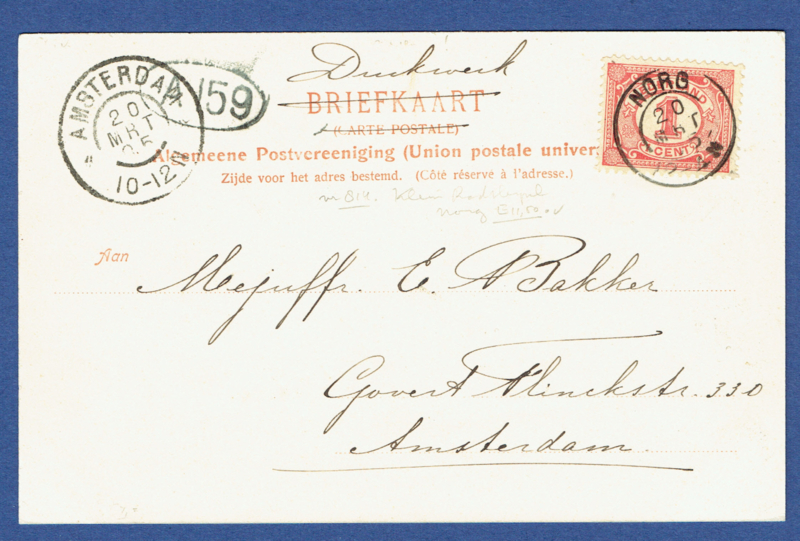 Drukwerk
BRIEFKAART
(CARTE POSTALE)
Algemeene Postvereeniging (Union postale univer
Zijde voor het adres bestemd. (Côté réservé à l'adresse.)
Klein Rondstempel
Norg
Aan
Mejuffr. E. A Bakker
Govert Flinckstr. 330
Amsterdam
AMSTERDAM
20
MRT
05
10-12V
159
NORG
20
MRT
1
CENT